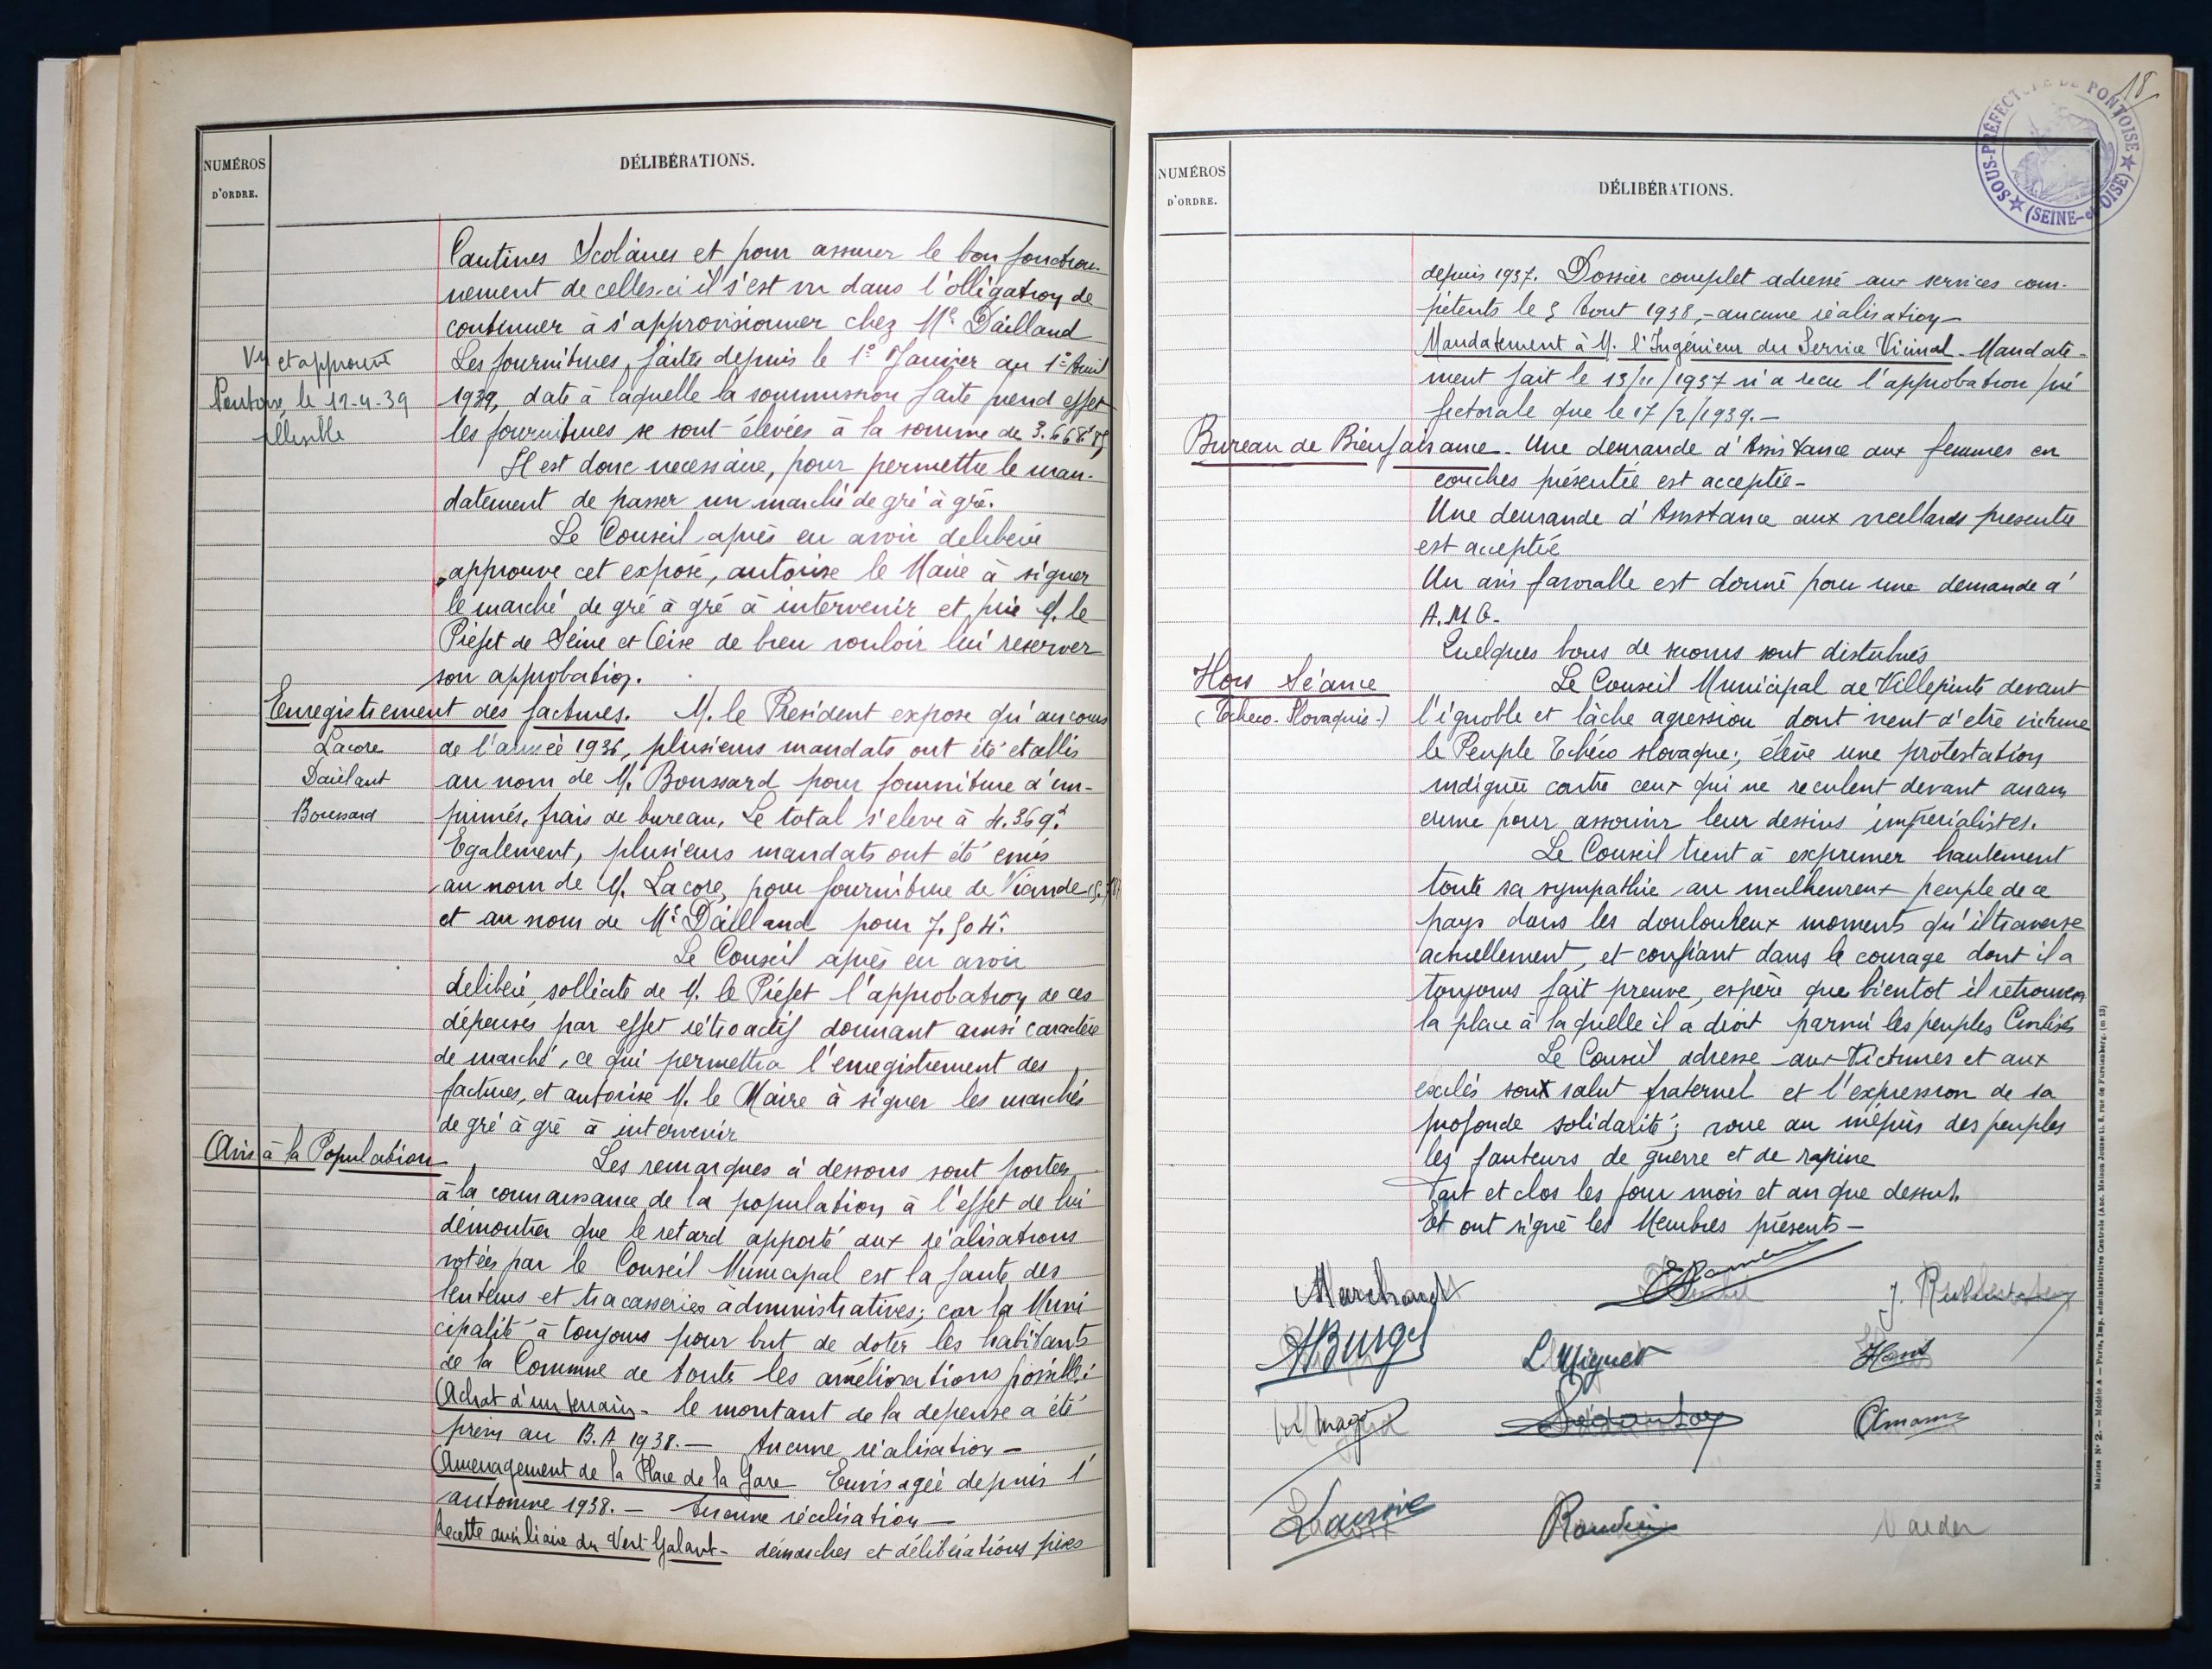 NUMÉROS
D'ORDRE.
DÉLIBÉRATIONS.
Cantines Scolaires et pour assurer le bon fonction-
nement de celles-ci il s'est vu dans l'obligation de
continuer à s'approvisionner chez Me Dailland
Les fournitures, faites depuis le 1er Janvier au 1er Avril
1939, date à laquelle la soumission faite prend effet
les fournitures se sont élevées à la somme de
Il est donc necessaire, pour permettre le man-
datement de passer un marché de gré à gré.
Vu et approuvé
Pontoise, le 12-4-39
illisible
Le Conseil après en avoir délibéré
approuve cet exposé, autorise le Maire à signer
le marché de gré à gré à intervenir et prie M. le
Préfet de Seine et Oise de bien vouloir lui reserver
son approbation.
Enregistrement des factures. M. le President expose qu'au cours
de l'année 1936, plusieurs mandats ont été etablis
au nom de M. Boussard pour fourniture d'im-
primés, frais de bureau, Le total s'eleve à 4.369f
Egalement, plusieurs mandats ont été émis
au nom de M. Lacore, pour fourniture de Viande
et au nom de Me Dailland pour 7.504f
Lacore
Dailant
Boussard
Le Conseil après en avoir
délibéré, sollicite de M. le Préfet l'approbation de ces
dépenses par effet rétroactif donnant ainsi caractère
de marché, ce qui permettra l'enregistrement des
factures, et autorise M. le Maire à signer les marchés
de gré à gré à intervenir
Avis à la Population
Les remarques ci dessous sont portées
à la connaissance de la population à l'effet de lui
démontrer que le retard apporté aux réalisations
votées par le Conseil Municipal est la faute des
lenteurs et tracasseries administratives; car la Muni
cipalité à toujours pour but de doter les habitants
de la Commune de toute les améliorations possible:
Achat d'un terrain - le montant de la depense a été
prévu au B.A 1938. — Aucune réalisation -
Aménagement de la Place de la Gare Envisagée depuis l'
automne 1938. — Aucune réalisation —
Recette auxiliaire du Vert Galant - démarches et délibérations prises
18
SOUS-PRÉFECTURE DE PONTOISE
(SEINE-et-OISE)
NUMÉROS
D'ORDRE.
DÉLIBÉRATIONS.
depuis 1937. Dossier complet adressé aux services com-
pétents le 5 Aout 1938, - aucune réalisation -
Mandatement à M. l'Ingénieur du Service Vicinal - Mandate-
ment fait le 13/11/1937 n'a recu l'approbation pré
fectorale que le 17/2/1939. -
Bureau de Bienfaisance. Une demande d'Assistance aux femmes en
couches présentée est acceptée -
Une demande d'Assistance aux vieillards presentée
est acceptée
Un avis favorable est donné pour une demande d'
A.M.G.
Quelques bons de secours sont distribués
Hors Séance
(Tchéco-Slovaquie.)
Le Conseil Municipal de Villepinte devant
l'ignoble et lâche agression dont vient d'etre victime
le Peuple Tchéco slovaque; élève une protestation
indignée contre ceux qui ne reculent devant aucun
crime pour assouvir leur dessins impérialistes.
Le Conseil tient à exprimer hautement
toute sa sympathie au malheureux peuple de ce
pays dans les douloureux moments qu'il traverse
actuellement, et confiant dans le courage dont il a
toujours fait preuve, espère que bientot il retrouvera
la place à laquelle il a droit parmi les peuples Civilisés
Le Conseil adresse aux Victimes et aux
exilés son salut fraternel et l'expression de sa
profonde solidarité; voue au mépris des peuples
les fauteurs de guerre et de rapine
Fait et clos les jour mois et an que dessus.
Et ont signé les Membres présents -
Marchandt
L Miguet
Mairies N° 2. — Modèle A — Paris, Imp. administrative Centrale (Anc. Maison Jousset), 8, rue de Furstenberg. (m 13)